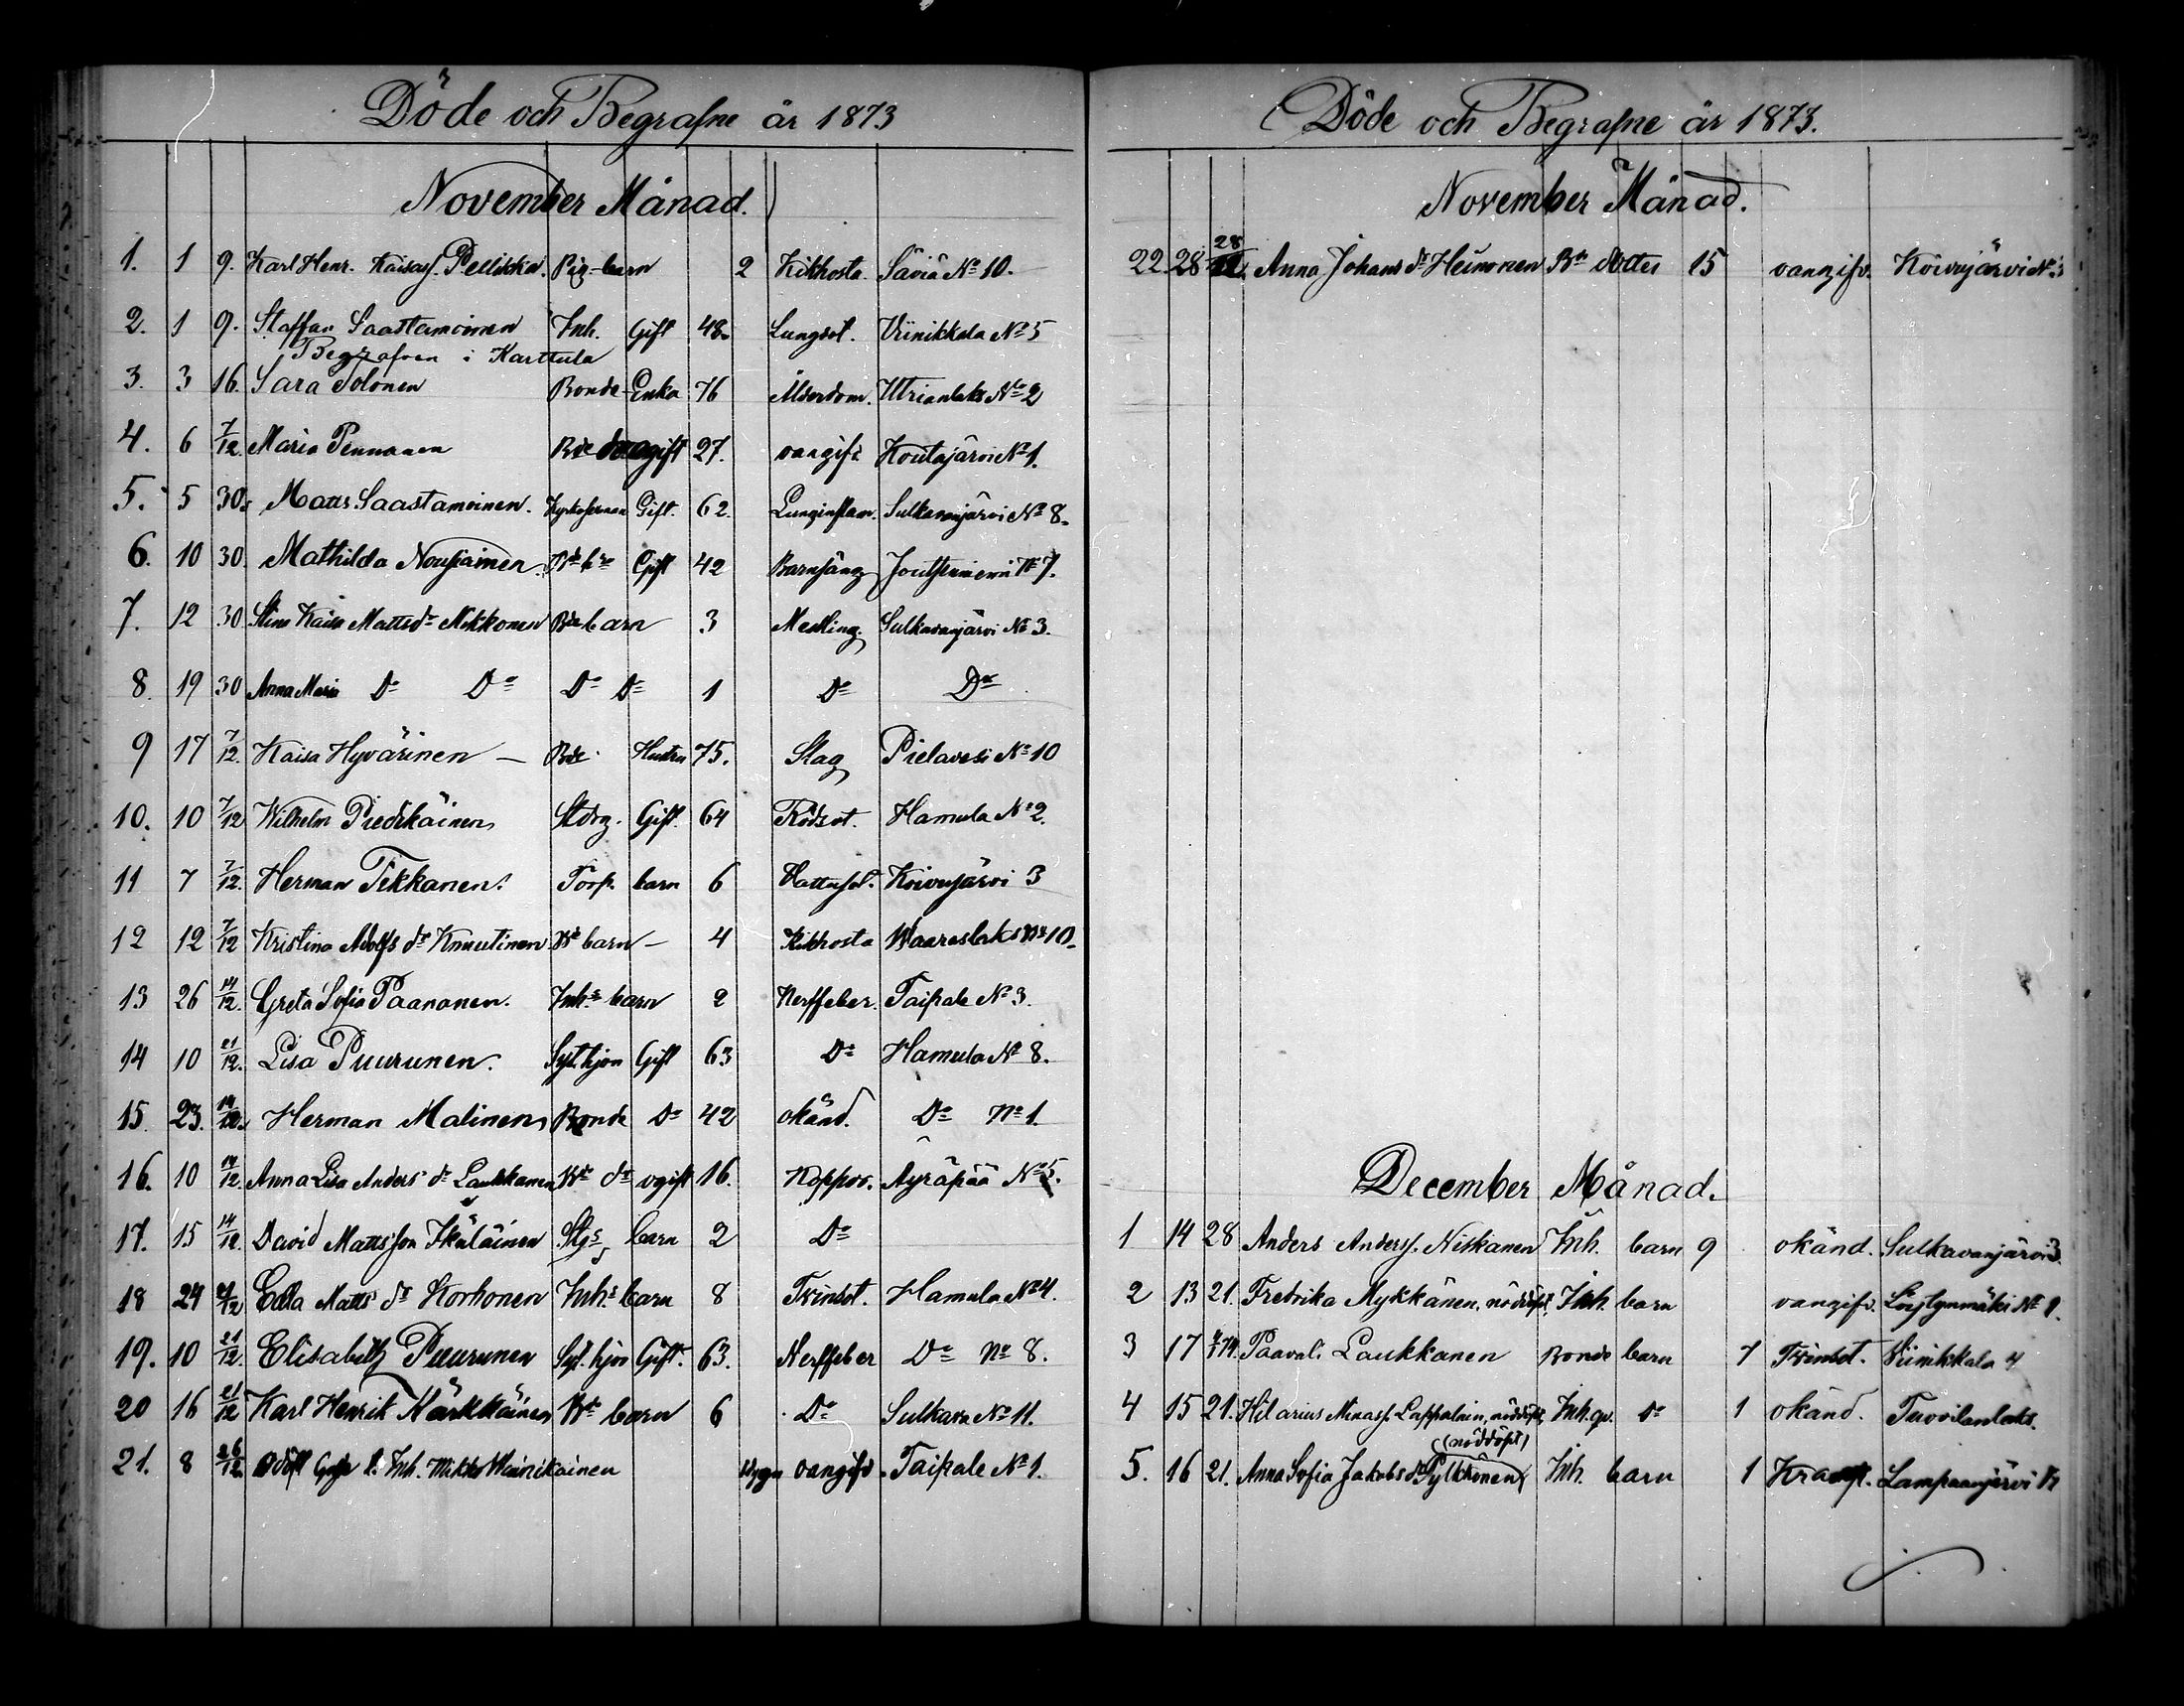 Döde och Begrafne år 1873
November Månad.
1. 1 9. Karl Henr. Kaisass. Pellikka. Pig-barn 2 Kikhosta. Säviä No 10.
2. 1 9. Staffan Saastamoinen Inh. Gift 48. Lungsot. Viinikkala No 5
Begrafven i Karttula
3. 3 16. Sara Tolonen Bonde-Enka 76 Ålderdom. Utrianlaks No 2
4. 6 7/12. Maria Pennanen Bde ogift 27. oangifv. Koutajärvi No 1.
5. 5 30. Matts Saastamoinen. Gift. 62. Lunginflam. Sulkavanjärvi No 8.
6. 10 30. Mathilda Nousiainen Gift 42 Barnsäng Joutsenniemi No 7.
7. 12 30 Stina Kaisa Mattsdr Nikkonen Bde barn 3 Messling. Sulkavanjärvi No 3.
8. 19 30 Anna Maria Do Do Do Do 1 Do Do
9 17 7/12. Kaisa Hyvärinen — Bde Hustru 75. Slag Pielavesi No 10
10. 10 7/12 Wilhelm Gift. 64 Rödsot. Hamula No 2.
11 7 7/12. Herman Tikkanen. Torp. barn 6 Koivujärvi 3
12 12 7/12 Kristina Adolfs dr Knuutinen Bde barn — 4 Kikhosta Waaraslaks No 10.
13 26 14/12. Greta Sofia Paananen. Inh:s barn 2 Nerffeber. Taipale No 3.
14 10 21/12. Lisa Puurunen. Syt.hjon Gift 63 Do Hamula No 8.
15 23. 14/12. Herman Malinen Bonde Do 42 okänd. Do No 1.
16. 10 14/12. Anna Lisa Anders dr Laukkanen Bde dr ogift 16. Koppor. Äyräpää No 5.
17. 15 14/12. David Mattsson Ikäläinen Stg:s barn 2 Do
18 24 21/12 Edla Matts dr Korhonen Inh:s barn 8 Tvinsot. Hamula No 4.
19. 10 21/12. Elisabeth Puurunen Syt.hjon Gift. 63. Nerffeber Do No 8.
20 16 21/12 Karl Henrik Kärkkäinen Bde barn 6 Do Sulkava No 11.
21. 8 26/12. Inh. Wäinikainen oangifv. Taipale No 1.
Döde och Begrafne år 1873.
November Månad.
22 28 28 Anna Johans dr Heinonen Bde dotter 15 oangifv. Koivujärvi No 3
December Månad.
1 14 28 Anders Anderss. Niskanen Inh. barn 9 okänd. Sulkavanjärvi 3.
2 13 21. Fredrika Mykkänen, nöddöpt. Inh. barn oangifv. Löytynmäki No 1.
3 17 Paavali Laukkanen Bonde barn 7 Tvinsot. Viinikkala 4
4 15 21. Hilarius nöddöpt, Inh. Do 1 okänd. Tuovilanlaks.
(nöddöpt)
5. 16 21. Anna Sofia Jakobs dr Pylkkönen Inh. barn 1 Kramp. Lampaanjärvi